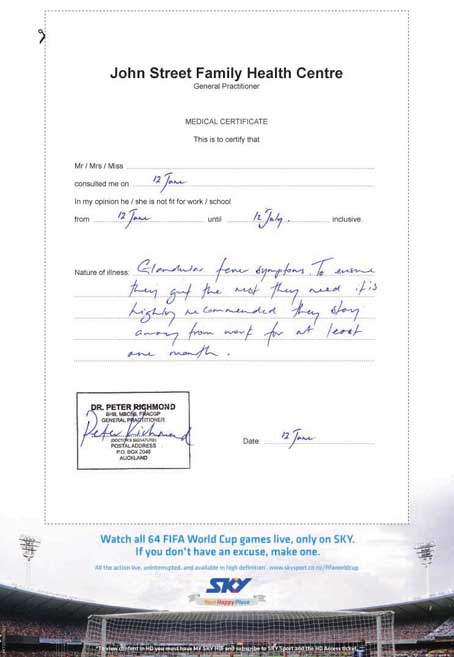 John Street Family Health Centre
General Practitioner
MEDICAL CERTIFICATE
This is to certify that
Mr / Mrs / Miss
consulted me on 12 June
In my opinion he / she is not fit for work / school
from 12 June until 12 July. inclusive.
Nature of illness: Glandular fever symptoms. To ensure
they get the rest they need it is
highly recommended they stay
away from work for at least
one month.
DR. PETER RICHMOND
BHB, MBChB, FRACGP
GENERAL PRACTITIONER
Peter Richmond
(DOCTOR'S SIGNATURE)
POSTAL ADDRESS
P.O. BOX 2046
AUCKLAND
Date: 12 June
Watch all 64 FIFA World Cup games live, only on SKY.
If you don't have an excuse, make one.
All the action live, uninterrupted, and available in high definition*. www.skysport.co.nz/fifaworldcup
SKY
Your Happy Place
*To view content in HD you must have MY SKY HDi and subscribe to SKY Sport and the HD Access ticket.